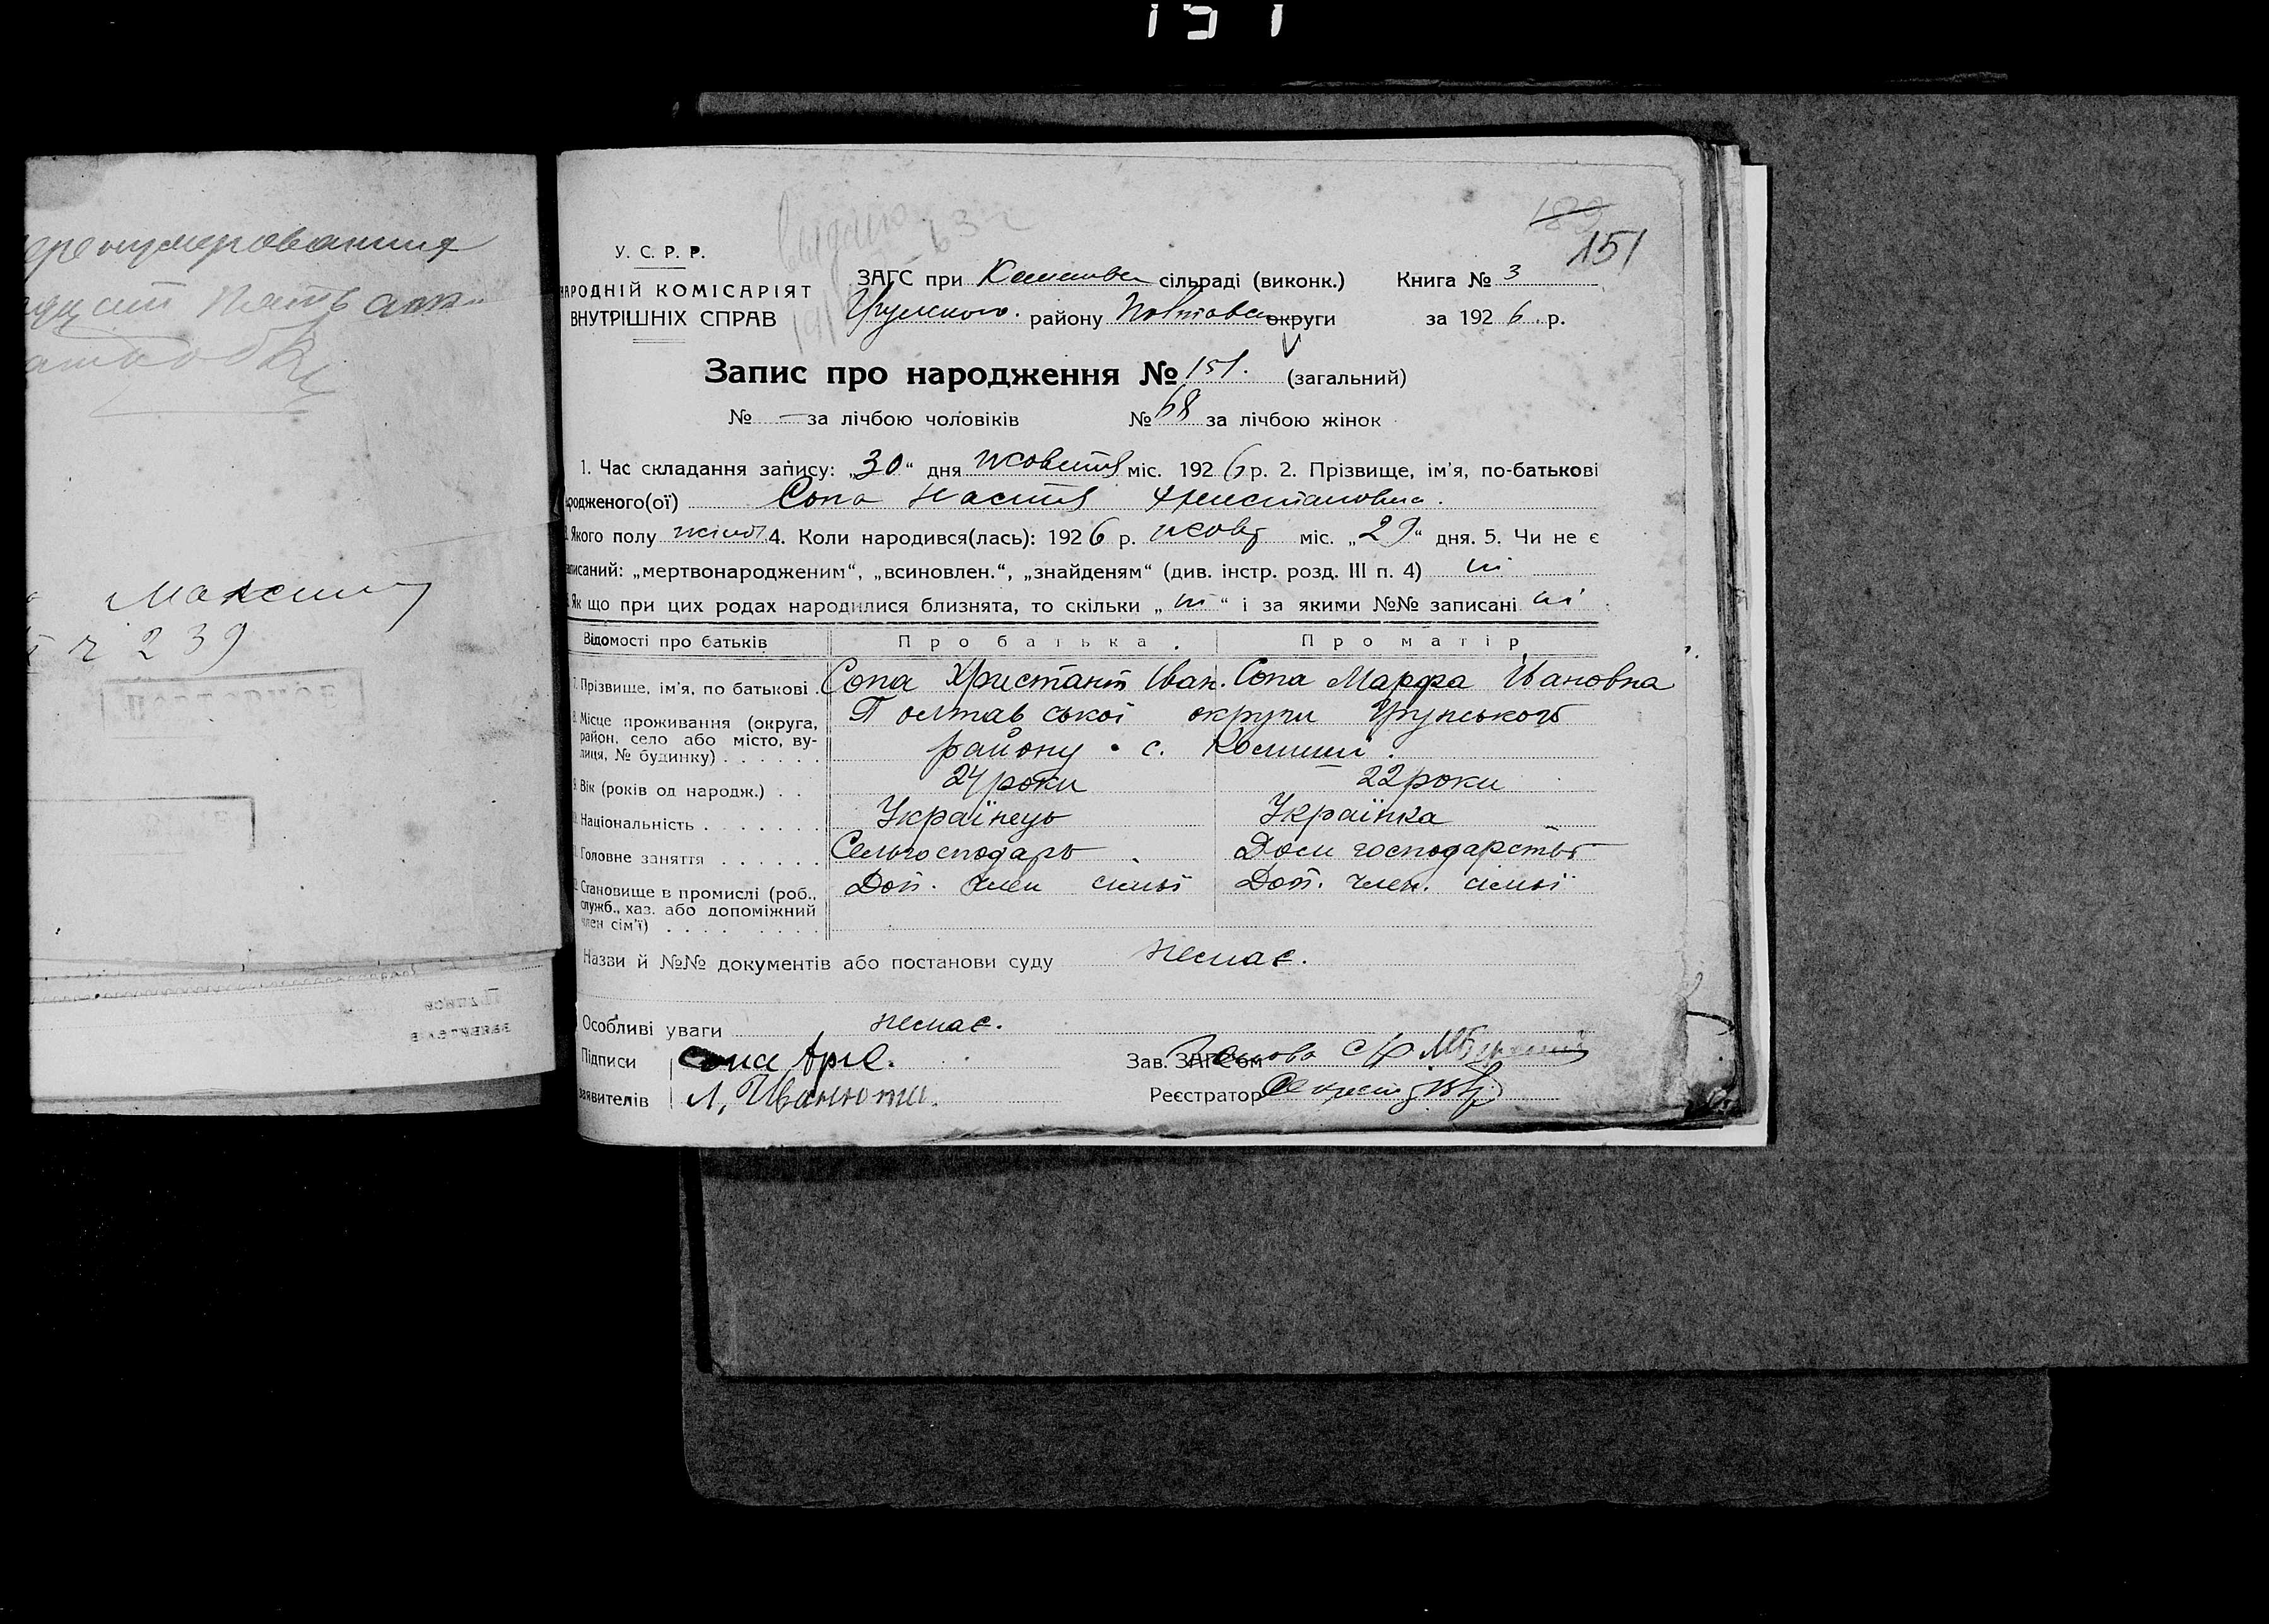 151
Максим
239
189
151
У. С. Р. Р.
НАРОДНІЙ КОМІСАРІЯТ
ВНУТРІШНІХ СПРАВ
ЗАГС при сільраді (виконк.) Книга № 3
району Полтавс округи за 1926 р.
Запис про народження № 151. (загальний)
№ — за лічбою чоловіків № 68 за лічбою жінок
1. Час складання запису: „30“ дня жовтня міс. 1926 р. 2. Прізвище, ім'я, по-батькові
родженого(ої) Сопа Настя Христановна.
Якого полу жіноч 4. Коли народився(лась): 1926 р. жовт міс. „29“ дня. 5. Чи не є
записаний: „мертвонародженим“, „всиновлен.“, „знайденям“ (див. інстр. розд. III п. 4) ні
Як що при цих родах народилися близнята, то скільки „ні“ і за якими №№ записані ні
Відомості про батьків Про батька. Про матір
7. Прізвище, ім'я, по батькові. Сопа Христант Іван. Сопа Марфа Івановна
8. Місце проживання (округа, район, село або місто, вулиця, № будинку) Полтавської округи Грунського
району с.
9. Вік (років од народж.) 24 роки 22 роки
Національність Українець Українка
Головне заняття Сельгосподарь Дом господарство
Становище в промислі (роб., служб., хаз. або допоміжний член сім'ї) Доп. член симьї Доп. член. симьї
Назви й №№ документів або постанови суду немає.
Особливі уваги немає.
Підписи Сопа Зав. ЗАГС'ом Голова С/Р
заявителів Л. Іванюта. Реєстратор Секрет